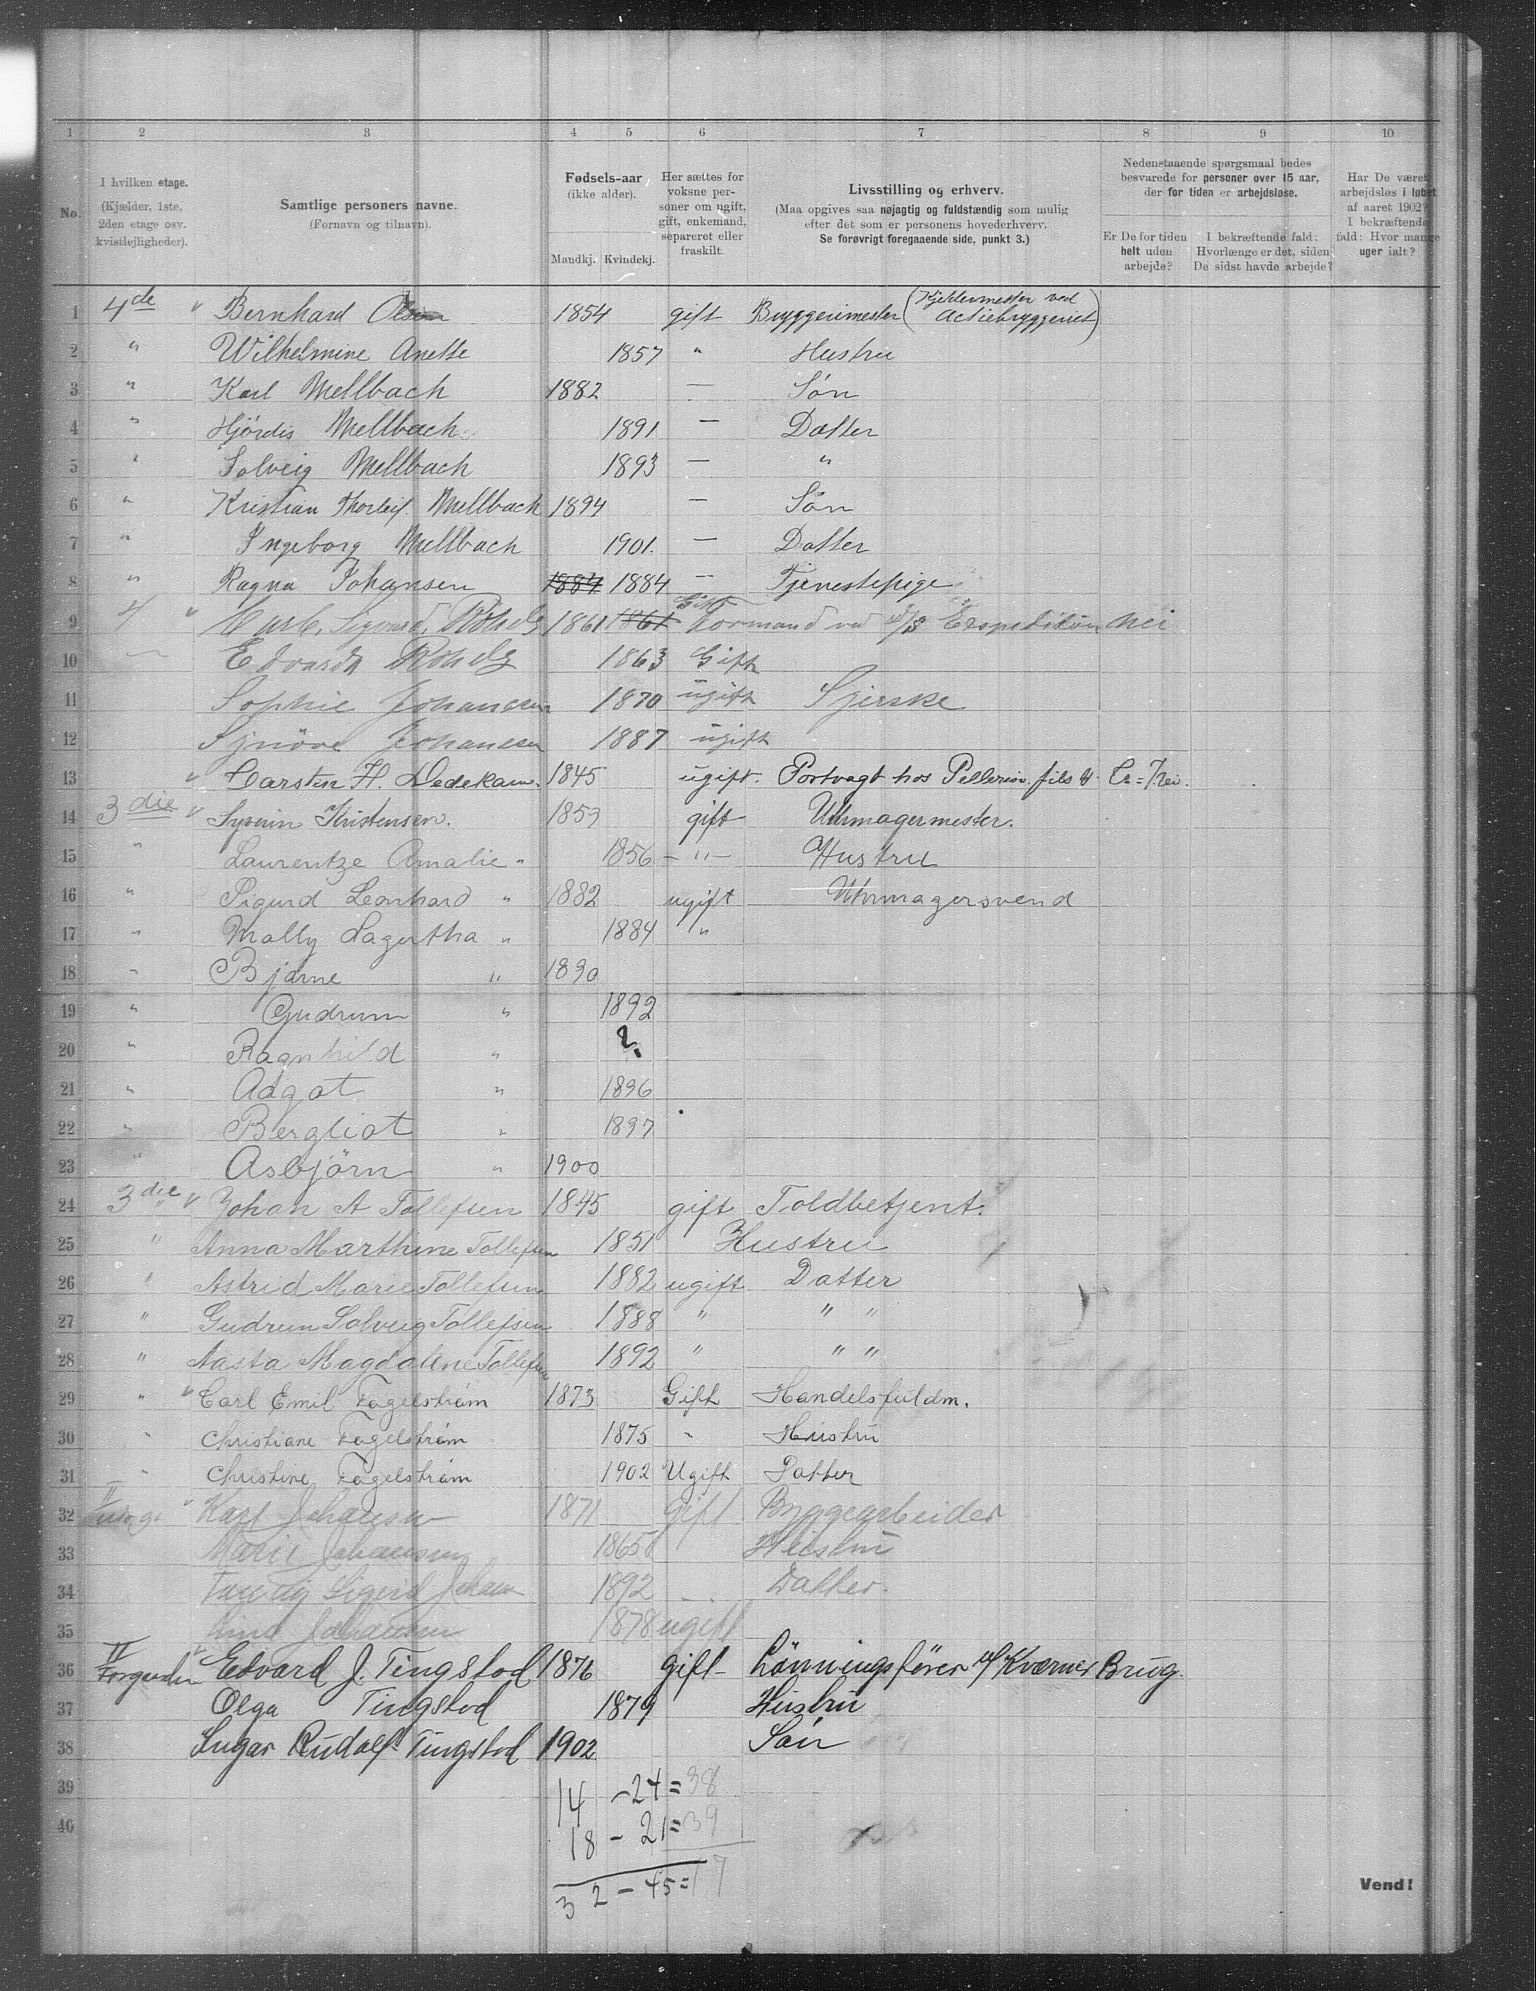 1 2 3 4 5 6 7 8 9 10
No.
I hvilken etage.
(Kjælder, 1ste.
2den etage osv.
kvistlejligheder).
Samtlige personers navne.
(Fornavn og tilnavn).
Fødsels-aar
(ikke alder).
Mandkj. Kvindekj.
Her sættes for
voksne per-
soner om ugift,
gift, enkemand,
separeret eller
fraskilt.
Livsstilling og erhverv.
(Maa opgives saa nøjagtig og fuldstændig som mulig
efter det som er personens hovederhverv.
Se forøvrigt foregaaende side, punkt 3.)
Nedenstaaende spørgsmaal bedes
besvarede for personer over 15 aar,
der for tiden er arbejdsløse.
Er De for tiden
helt uden
arbejde?
I bekræftende fald:
Hvorlænge er det, siden
De sidst havde arbejde?
Har De været
arbejdsløs i løbet
af aaret 1902?
I bekræftende
fald: Hvor mange
uger ialt?
1 4de " Bernhard 1854 gift Bryggerimester (Kjeldermester ved Actiebryggeriet)
2 " Wilhelmine Anette 1857 " Hustru
3 " Karl Mellbach 1882 — Søn
4 " Hjördis Mellbach 1891 — Datter
5 " Solveig Mellbach 1893 — "
6 " Kristian Thorleif Mellbach 1894 — Søn
7 " Ingeborg Mellbach 1901. — Datter
8 " Ragna Johansen 1884 1884 — Tjenestepige
9 4 " Sigvard 1861 1861 Gift Formand ved Expedition Nei
10 — Edvarda 1863 Gift
11 Sophie Johansen 1870 ugift Syerske
12 Synöve Johansen 1887 ugift
13 " Carsten H. Dedekam. 1845 ugift. Portvagt hos Pellerin, fils &
14 3die " Syverin Kristensen. 1853 gift Uhrmagermester.
15 " Laurentze Amalie " 1856 — " — Hustru
16 " Sigurd Leonhard " 1882 ugift Uhrmagersvend
17 " Molly Lagertha " 1884 "
18 " Bjarne " 1890
19 " Gudrun " 1892
20 " Ragnhild " ?
21 " Adgot " 1896
22 " Bergliot " 1897
23 " Asbjörn " 1900
24 3die " Johan A Tollefsen 1845 gift Toldbetjent.
25 " Anna Marthine Tollefsen 1851 Hustru
26 " Astrid Marie Tollefsen 1882 ugift Datter
27 " Gudrun Solveig Tollefsen 1888 " " "
28 " Aasta Magdalene Tollefsen 1892 " " "
29 " " Carl Emil Fagelstrøm 1873 Gift Handelsfuldm.
30 " Christiane Fagelstrøm 1875 " Hustru
31 " Christine Fagelstrøm 1902 Ugift Datter
32 II " Karl Johansen 1871 gift Byggearbeider
33 Marie Johansen 1865 Hustru
34 Sigrid Johansen 1892 Datter.
35 Johansen 1878 ugift
36 II Forgaarden Edvard J. Tingstod 1876 gift Lönningsfører v/ Kværner Brug.
37 Olga Tingstod 1879 Hustru
38 Rudolf Tingstod 1902 Søn
39 14 – 24 = 38
40 18 – 21 = 39
32 – 45 = 17
Vend!